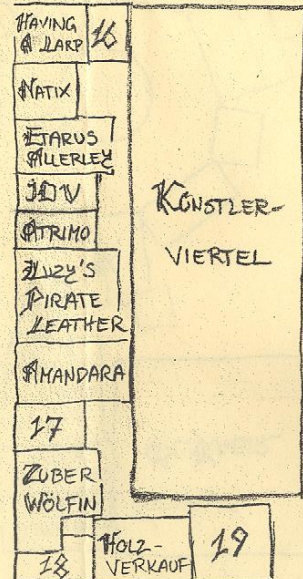 HAVING
A LARP
16
NATIX
ETARUS
ALLERLEY
JDV
ATRIMO
LUZY'S
PIRATE
LEATHER
AMANDARA
17
ZUBER
WÖLFIN
18
HOLZ-
VERKAUF
19
KÜNSTLER-
VIERTEL